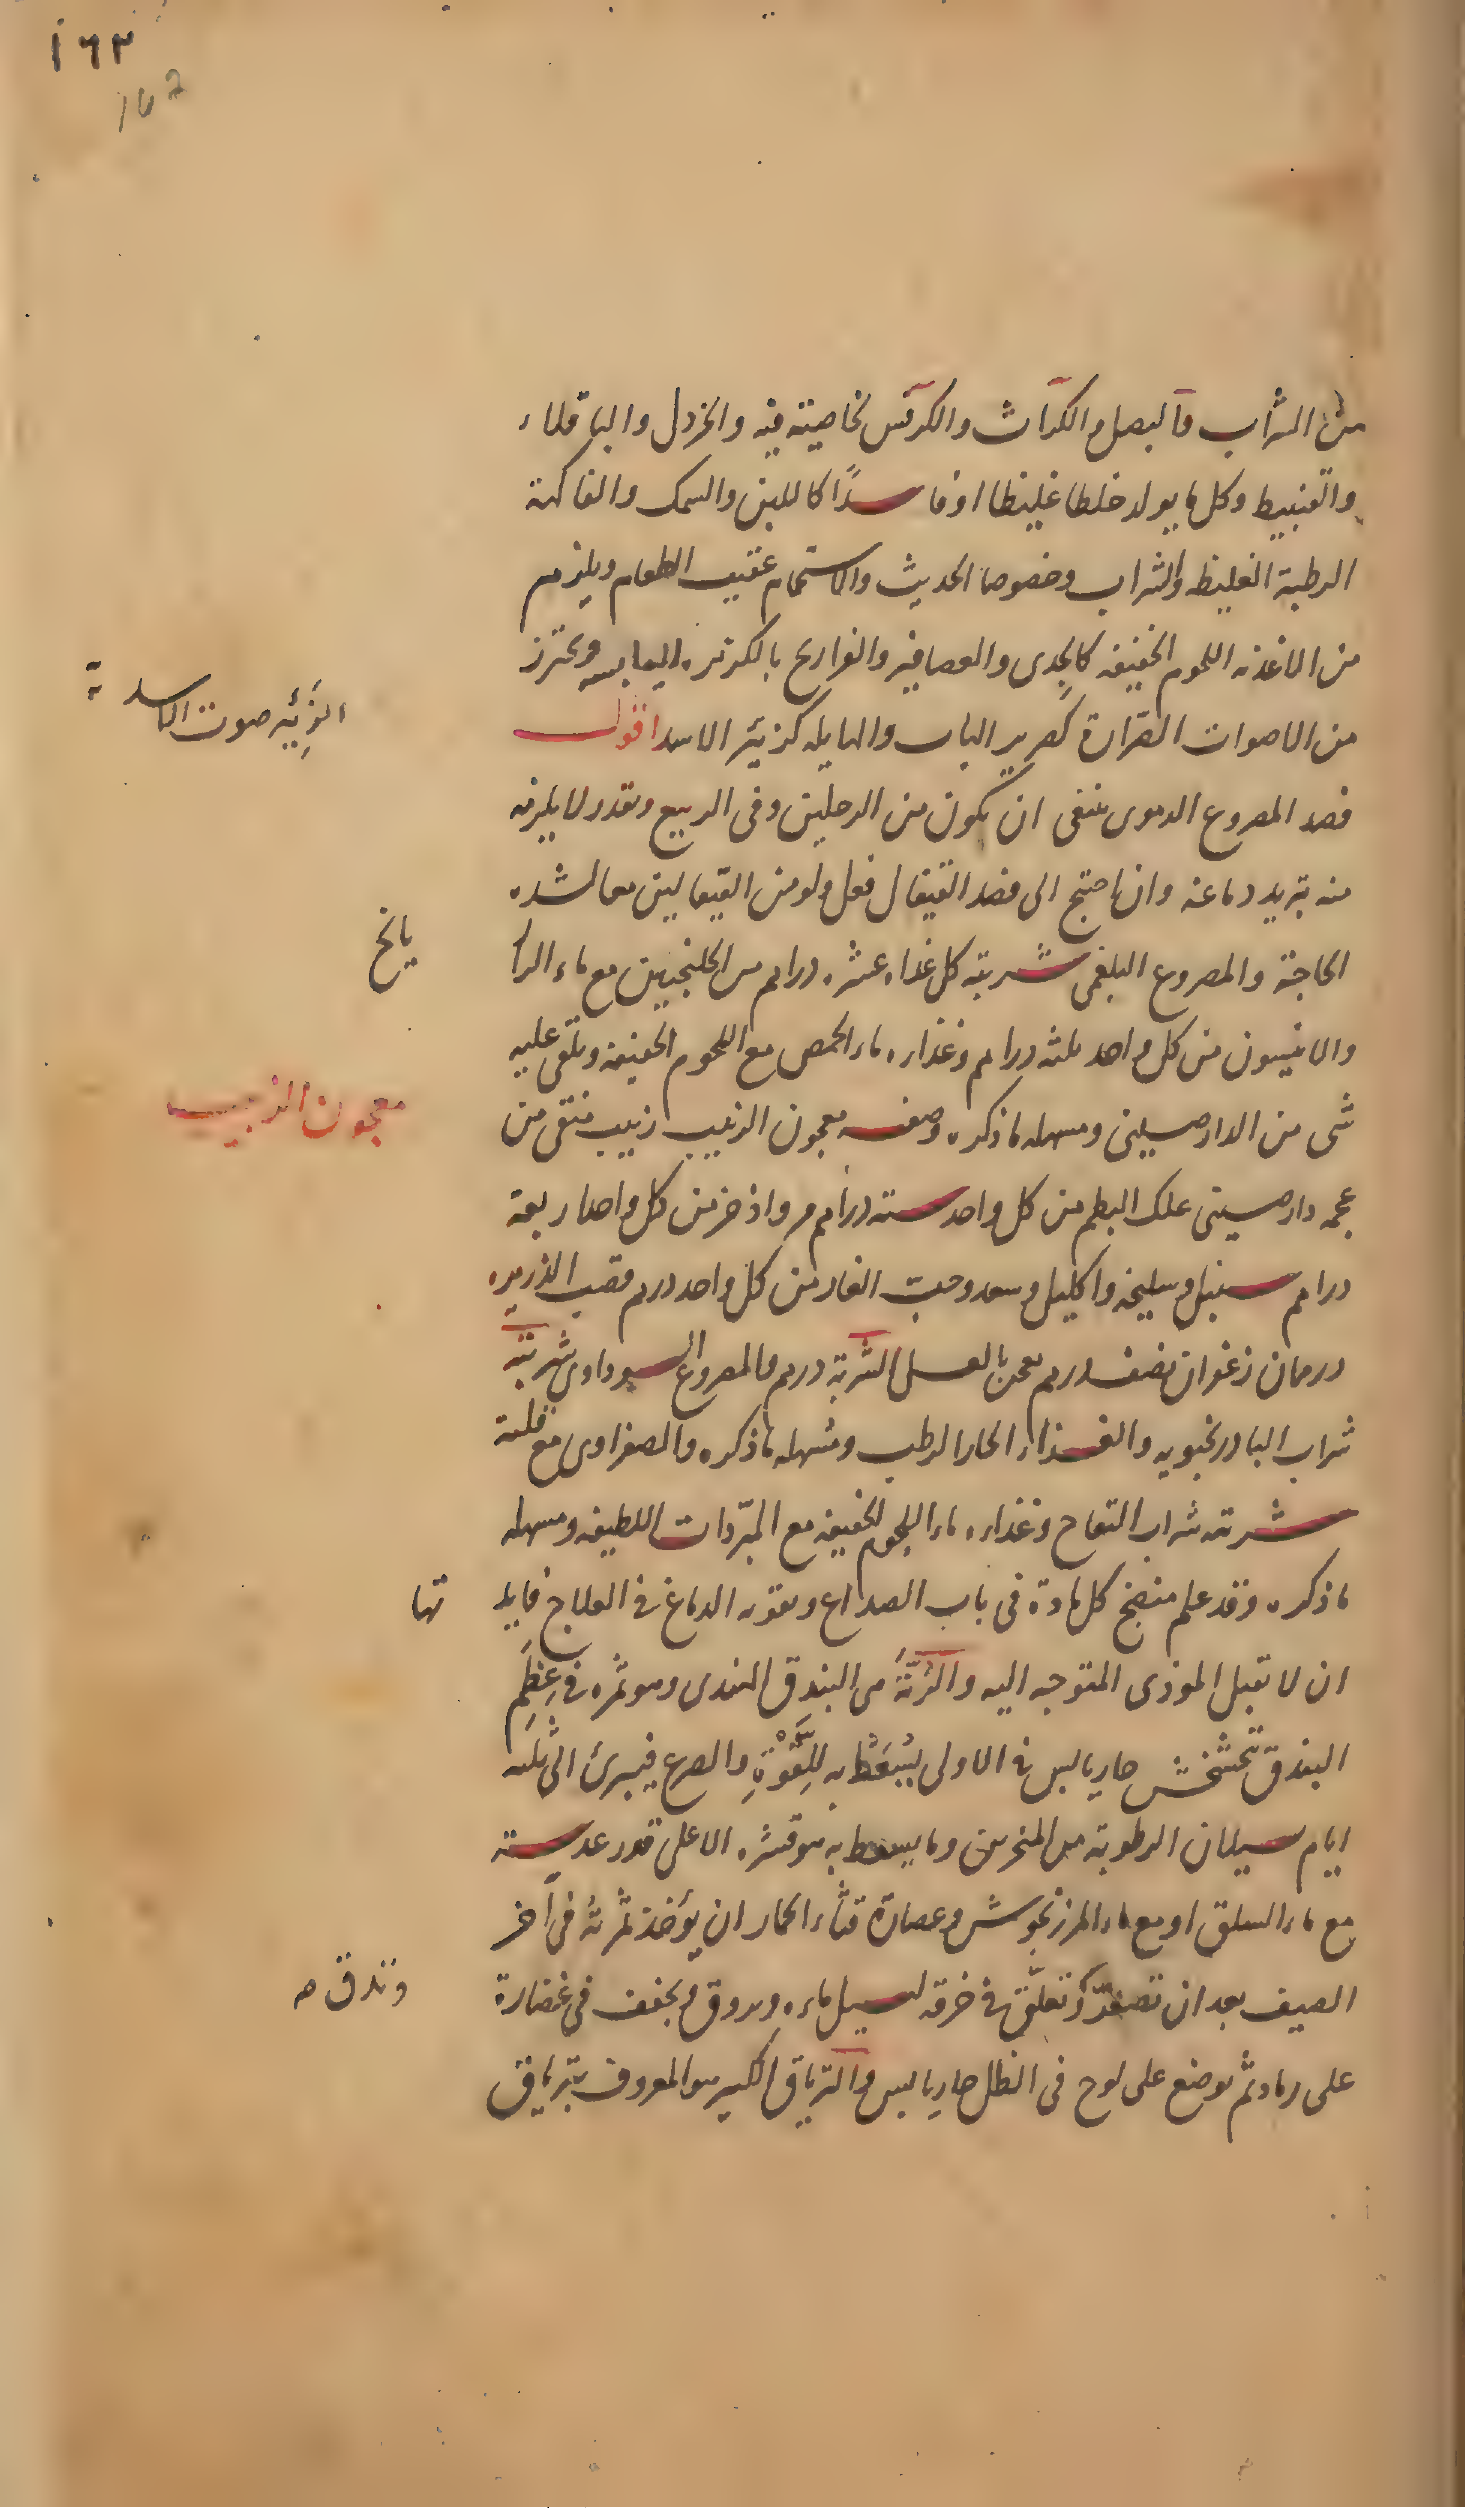 ١٦٢
162
من الشراب والبصل والكراث والكرفس لخاصيته فيه والخردل والباقلاء
والقنبيط وكل ما يولد خلطا غليظا او فاسدًا كاللبن والسمك والفاكهة
الرطبة الغليظه والشراب وخصوصا الحديث والاستحمام عقيب الطعام ويلزم
من الاغذيه اللحوم الخفيفه كالجدى والعصافير والفراريج بالكزبره اليابسه ويحترز
الزئيه صوت الاسد
من الاصوات الصرّارة كصرير الباب والهايله كزئير الاسد اقول
فصد المصروع الدموى ينبغى ان يكون من الرجلين وفى الربيع وبقدر لا يلزمه
منه تبريد دماغه وان احتيج الى فصد القيفال فعل ولو من القيفالين معا لشده
الحاجة والمصروع البلغمى شربته كل غداه عشره دراهم من الجلنجبين مع ماء الرا
يانج
والانيسون من كل واحد ثلثه دراهم وغذاره ماء الحمص مع اللحوم الخفيفه ويلقى عليه
شى من الدارصينى ومسهله ما ذكره وصفه معجون الزبيب زبيب منقى من
معجون الزبيب
عجمه دارصينى علك البطم من كل واحد سته دراهم مر واذخر من كل واحد اربعة
دراهم سنبل وسليخه واكليل وسعد وحب الغار من كل واحد درهم قصب الذريره
درهمان زعفران نصف درهم يعجن بالعسل الشربة درهم والمصروع السوداوى شربته
شراب البادرنجبويه والغذاء الحار الرطب ومسهله ما ذكره والصفراوى مع قلته
شربته شراب التفاح وغذاره ماء اللحوم الخفيفه مع المبرّدات اللطيفه ومسهله
ما ذكره وقد علم منضج كل مادة فى باب الصداع وتقويه الدماغ فى العلاج فايد
تها
ان لا تقبل الموذى المتوجه اليه والرتّة هى البندق الهندى وهو ثمره فى عِظَم
البندق تتخشخش حار يابس فى الاولى يُسْعَطُ به لِلَّقْوَةِ والصرع فيبرئ الى ثلثه
ايام سيلان الرطوبة من المنخرين وما يسعط به هو قشره الاعلى قدر عدسته
مع ماء السلق او مع ماء المرزنجوش وعصارة قثّاء الحمار ان يؤخذ ثمرتهُ فى آخر
الصيف بعد ان تصفرّ وتعلّق فى خرقه ليسيل ماءه ويروق ويجفف فى غضارة
وتدق صـ
على رماد ثم يوضع على لوح فى الظل حار يابس والترياق الكبير هو المعروف بترياق